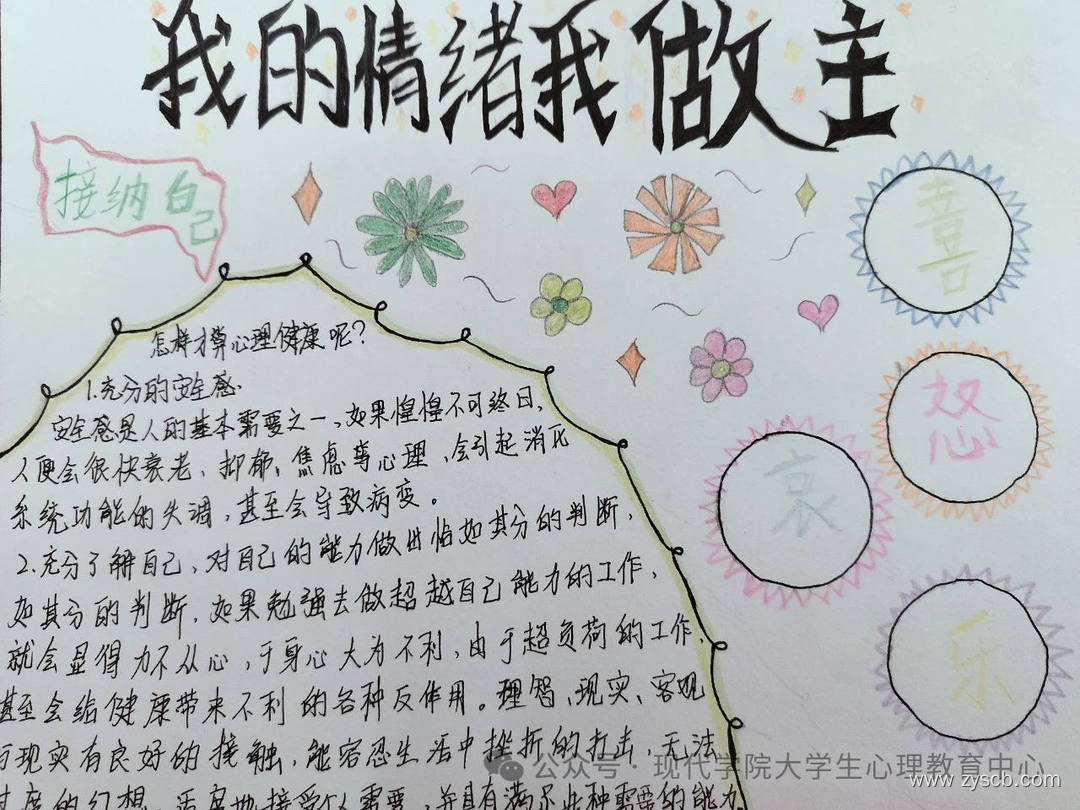 我的情绪我做主
接纳自己
喜
怒
哀
乐
怎样才算心理健康呢？
1.充分的安全感、
安全感是人的基本需要之一、如果惶惶不可终日，
人便会很快衰老、抑郁、焦虑等心理、会引起消化
系统功能的失调，甚至会导致病变。
2.充分了解自己、对自己的能力做出恰如其分的判断，
如其分的判断，如果勉强去做超越自己能力的工作，
就会显得力不从心，于身心大为不利，由于超负荷的工作，
甚至会给健康带来不利的各种反作用。理智、现实、客观
与现实有良好的接触，能容忍生活中挫折的打击，无法
过度的幻想，适度地接受个人需要，并具有满足此种需要的能力
公众号·现代学院大学生心理教育中心
www.zyscb.com